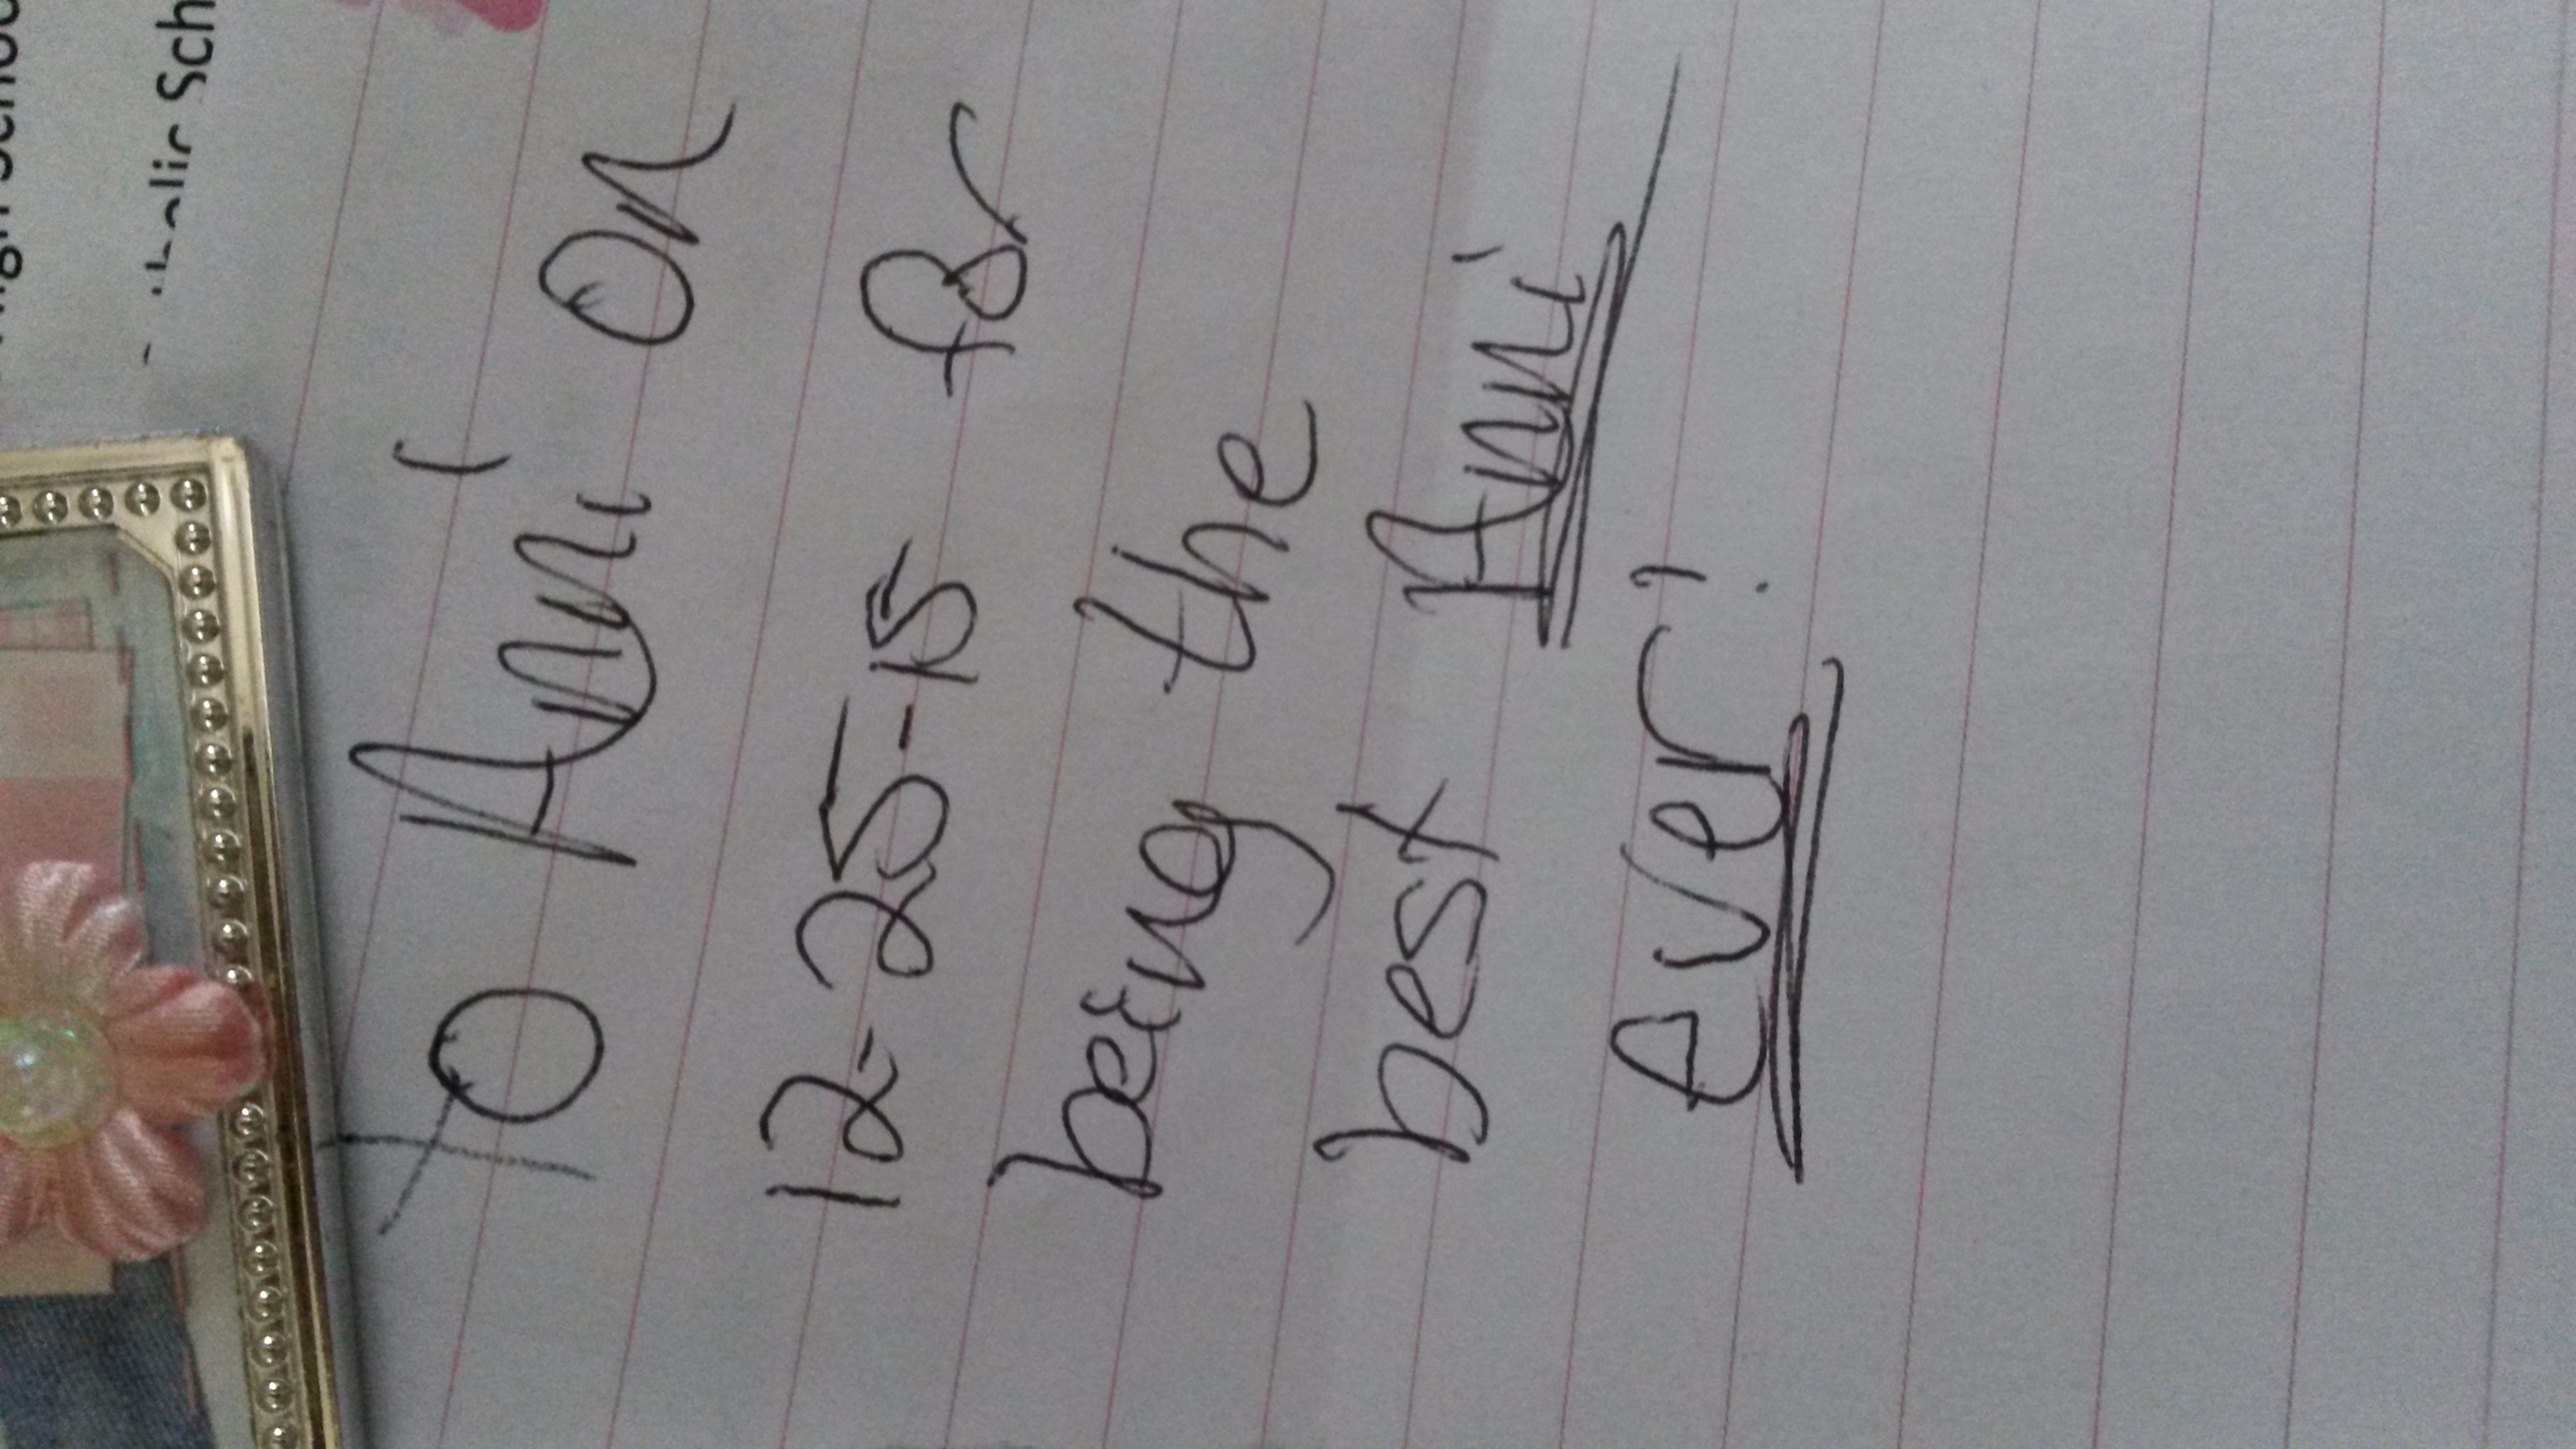 igh Schoo
tholic Sch
to Anni on
12-25-15 for
being the
best Anni
ever!